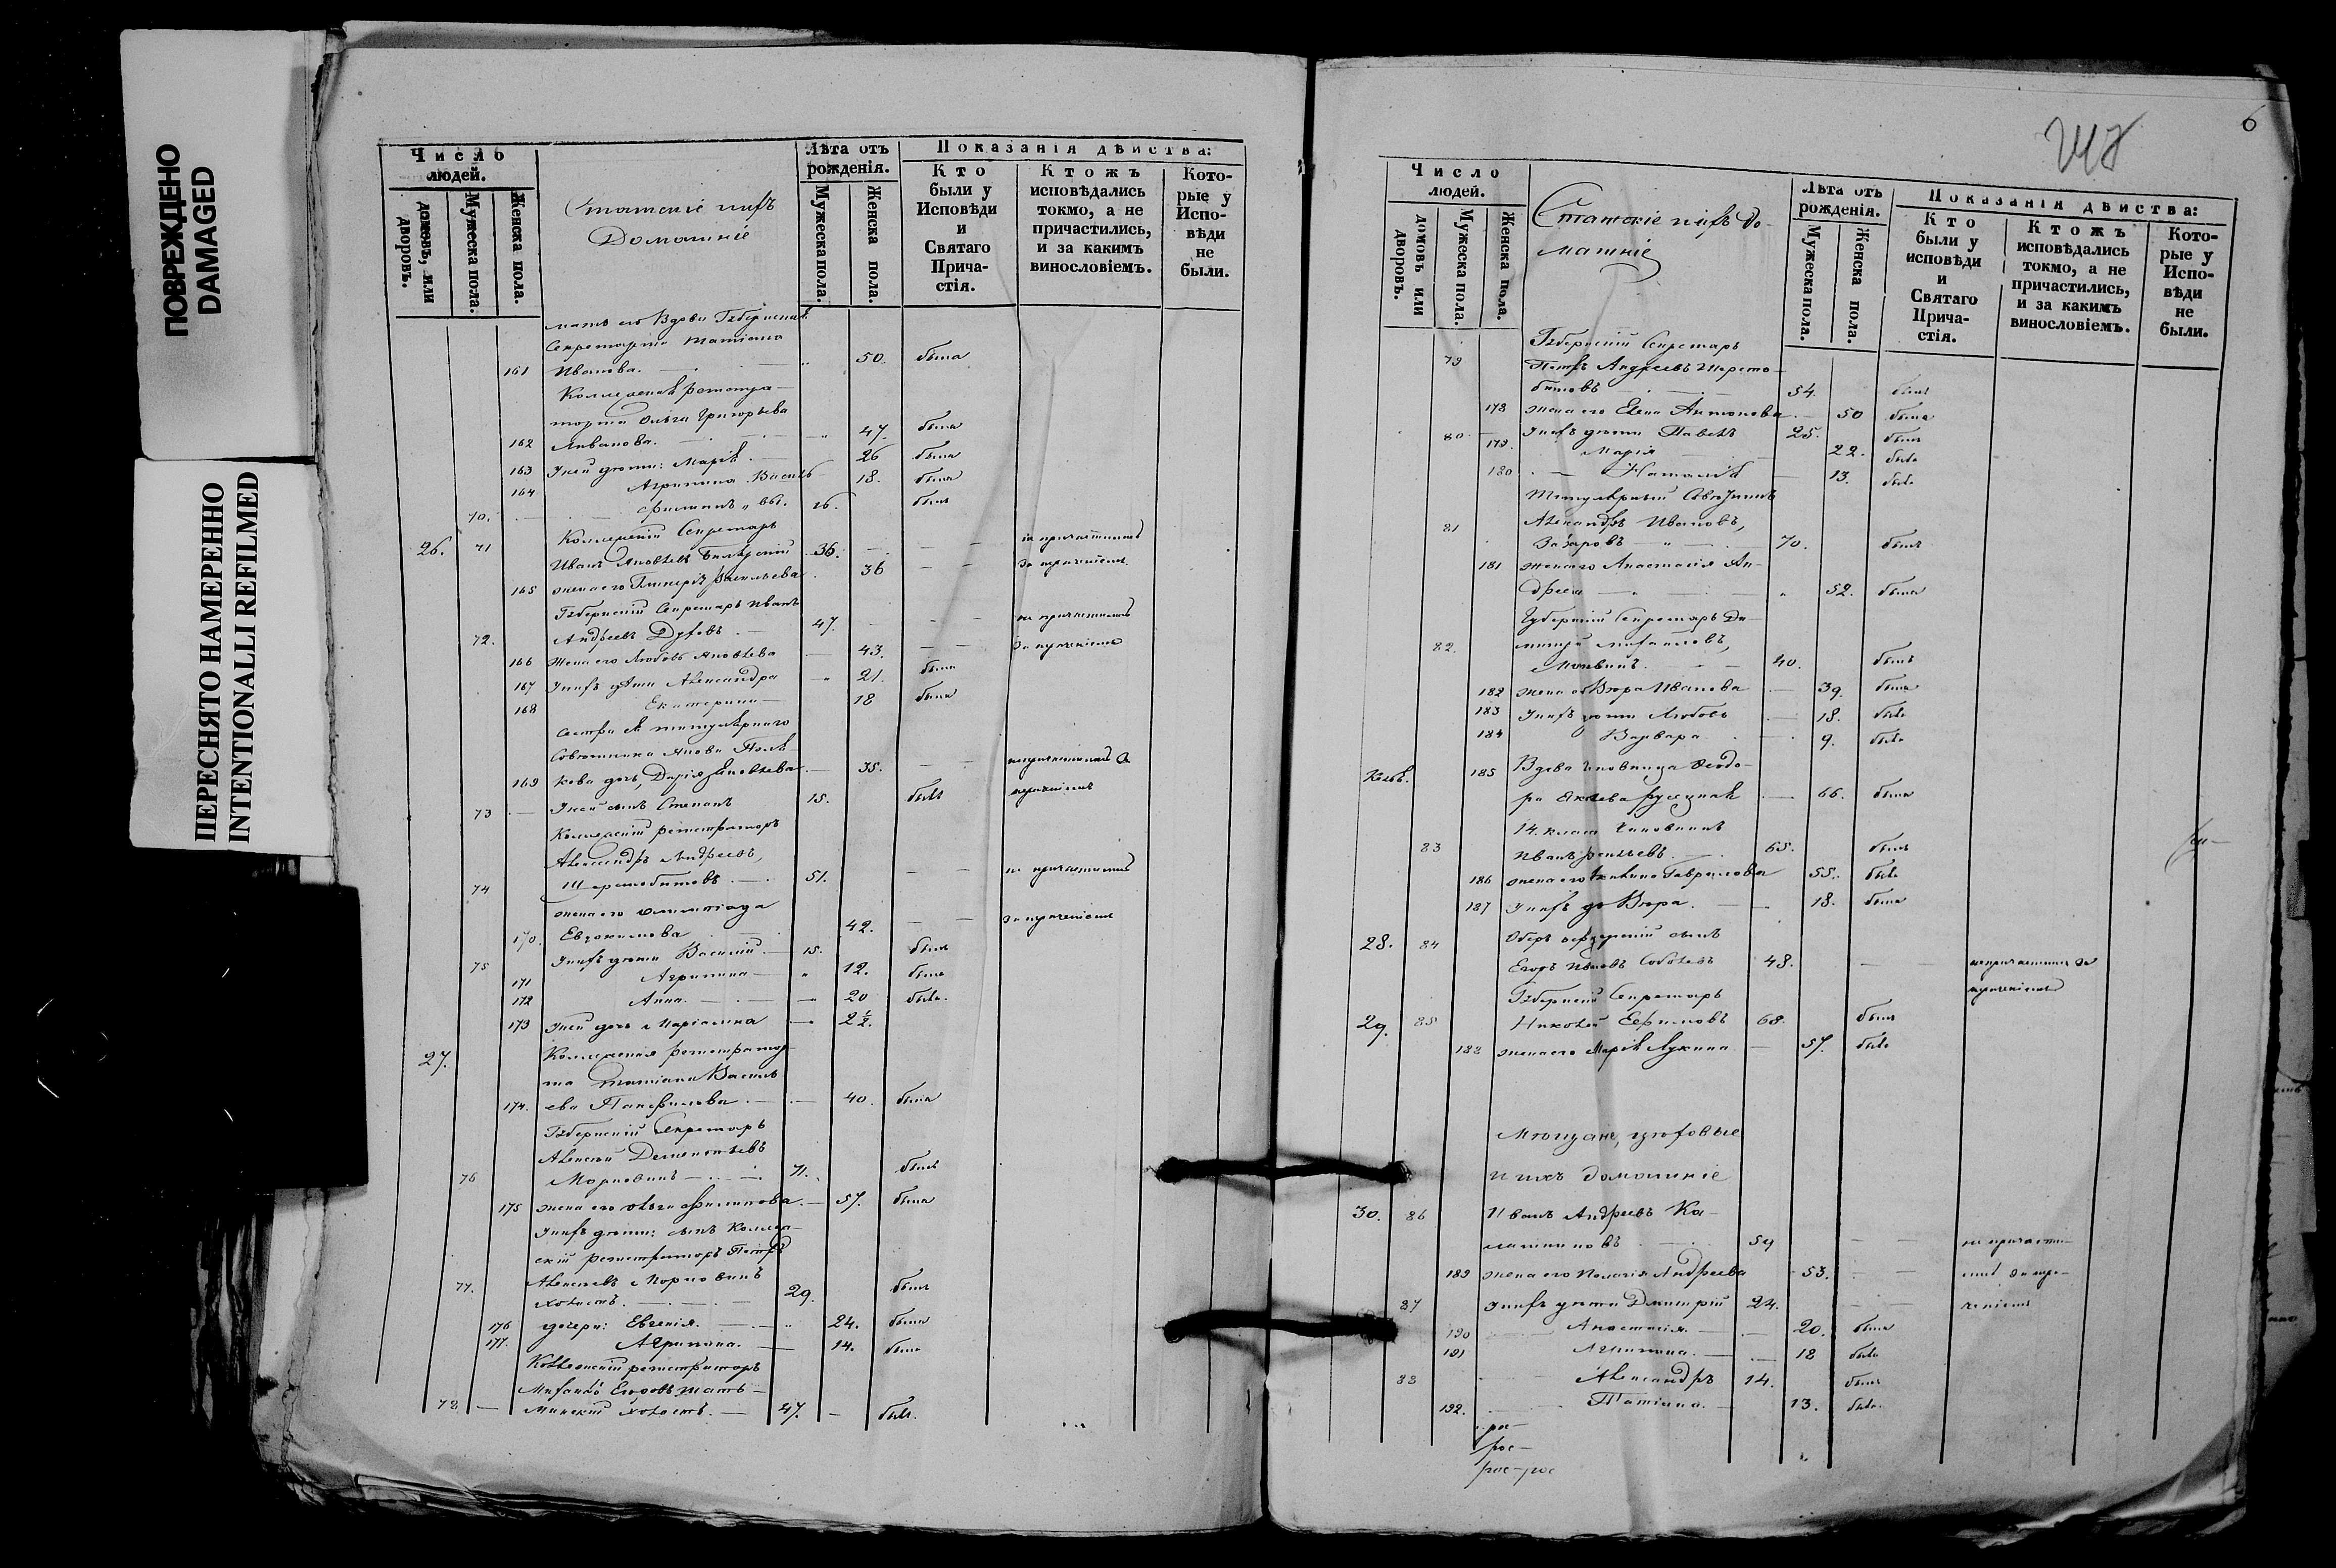 ПОВРЕЖДЕНО
DAMAGED
ПЕРЕСНЯТО НАМЕРЕННО
INTENTIONALLI REFILMED
Число людей.
домовъ, или дворовъ.
Мужеска пола.
Женска пола.
Статскіе ихъ
Домашніе
Лѣта отъ рожденія.
Мужеска пола.
Женска пола.
Показанія дѣйства:
Кто были у Исповѣди и Святаго Причастія.
Ктожъ исповѣдались токмо, а не причастились, и за какимъ винословіемъ.
Которые у Исповѣди не были.
мать его Вдова Губернск.
Секретарша Татіана
161 Иванова. 50. была
Ольга Григорьева
162 47. была
163 У ней дѣти: Марія 26 была
164 Агрипина 18. была
70. 16. былъ
Коллежскій Секретарь
26. 71 Иванъ Яковлевъ 36. не причастился
165 жена его 36 за
Губернскій Секретарь Иванъ
72. Андреевъ 47. не причастился
166 Жена его Любовь Яковлева 43. за
167 У нихъ дѣти Александра 21. была
168 Екатерина 18 была
сестра титулярнаго
169 дочь, Дарія Яковлева 35.
73 У ней сынъ Степанъ 15. былъ
Коллежскій регистраторъ
Александръ Андреевъ,
74 Шерстобитовъ 51. не причастился
жена его Олимпіада
170. Евдокимова 42. за
75 У нихъ дѣти Василій 15. былъ
171 Агрипина 12. была
172 Анна 20 была
173 У ней дочь Маріамна 2½.
27. Коллежская регистратор-
ша Татіана Василь-
174. ева Панфилова 40. была
Губернскій Секретарь
Алексѣй Дементьевъ
76 71. былъ
175 жена его Ольга Филипова 57. была
У нихъ дѣти: сынъ Коллеж-
скій регистраторъ Петръ
77. Алексѣевъ
холостъ. 29. былъ
176 дочери: Евгенія. 24. была
177. Агрипина. 14. была
Коллежскій регистраторъ
Михаилъ Егоровъ
78 холостъ. 47. былъ.
6
Число людей.
домовъ или дворовъ.
Мужеска пола.
Женска пола.
Статскіе ихъ до-
машніе
Лѣта отъ рожденія.
Мужеска пола.
Женска пола.
Показанія дѣйства:
Кто были у исповѣди и Святаго Причастія.
Ктожъ исповѣдались токмо, а не причастились, и за какимъ винословіемъ.
Которые у Исповѣди не были.
Губернскій Секретарь
79 Петръ Андреевъ Шерсто-
битовъ 54. былъ
178 жена его Елена Антонова 50 была
80 У нихъ дѣти Павелъ 25. былъ
179. Марія 22. была
180 Наталія 13. была
Титулярный Совѣтникъ
81 Александръ Ивановъ,
Захаровъ 70. былъ
181 жена его Анастасія Ан-
дреева 52. была
Губернскій Секретарь Ди-
82. митрій Михайловъ,
40. былъ
182 жена его Вѣра Иванова 39. была
183 У нихъ дѣти Любовь 18. была
184 Варвара 9. была
185 Вдова чиновница Ѳеодо-
ра 66. была
14. класса Чиновникъ
83 Иванъ 65. былъ
186 жена его Гаврилова 55. была
187 У нихъ дочь Вѣра. 18. была
28. 84 Оберъ офицерскій сынъ
Егоръ Соболевъ 48. не причастился за
Губернскій Секретарь
29. 85 Николай Ефимовъ 68. былъ
188 жена его Марія Лукина 57. была
Мѣщане, цѣховые
и ихъ домашніе
30. 86 Иванъ Андреевъ Ка-
лашниковъ 54 не причасти-
189 жена его Андреева 53.
87 У нихъ дѣти Дмитрій 24.
190 Анастасія. 20. была
191 Агрипина. 18 была
88 Александръ 14. былъ
192. Татіана. 13. была
рос-
рос-
рос-рос